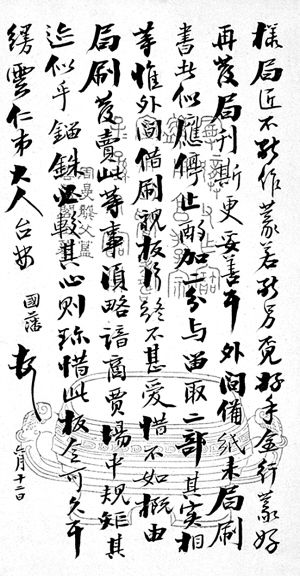 樣局匠不能作篆若能另覓好手全行篆好
再發局刊斯更妥善耳外間備紙来局刷
書此似應停止加二分与留取二部其實相
等惟外間借刷視板片終不甚愛惜不如概由
局刷發賣此等事須略諳商賈場中規矩其
迹似乎錙銖必較其心則珍惜此板令可久耳
縵雲仁弟大人台安
國藩頓
六月十二日